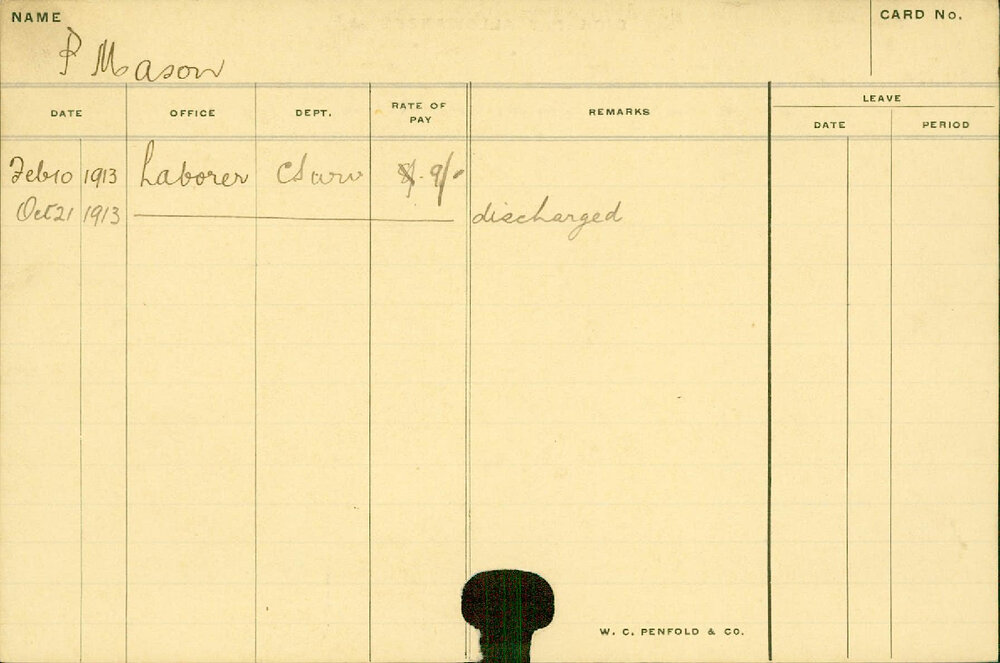 NAME
CARD No.
P Mason
DATE OFFICE DEPT. RATE OF PAY REMARKS LEAVE
DATE PERIOD
Feb 10 1913 Laborer 9/-
Oct 21 1913 discharged
W. C. PENFOLD & CO.